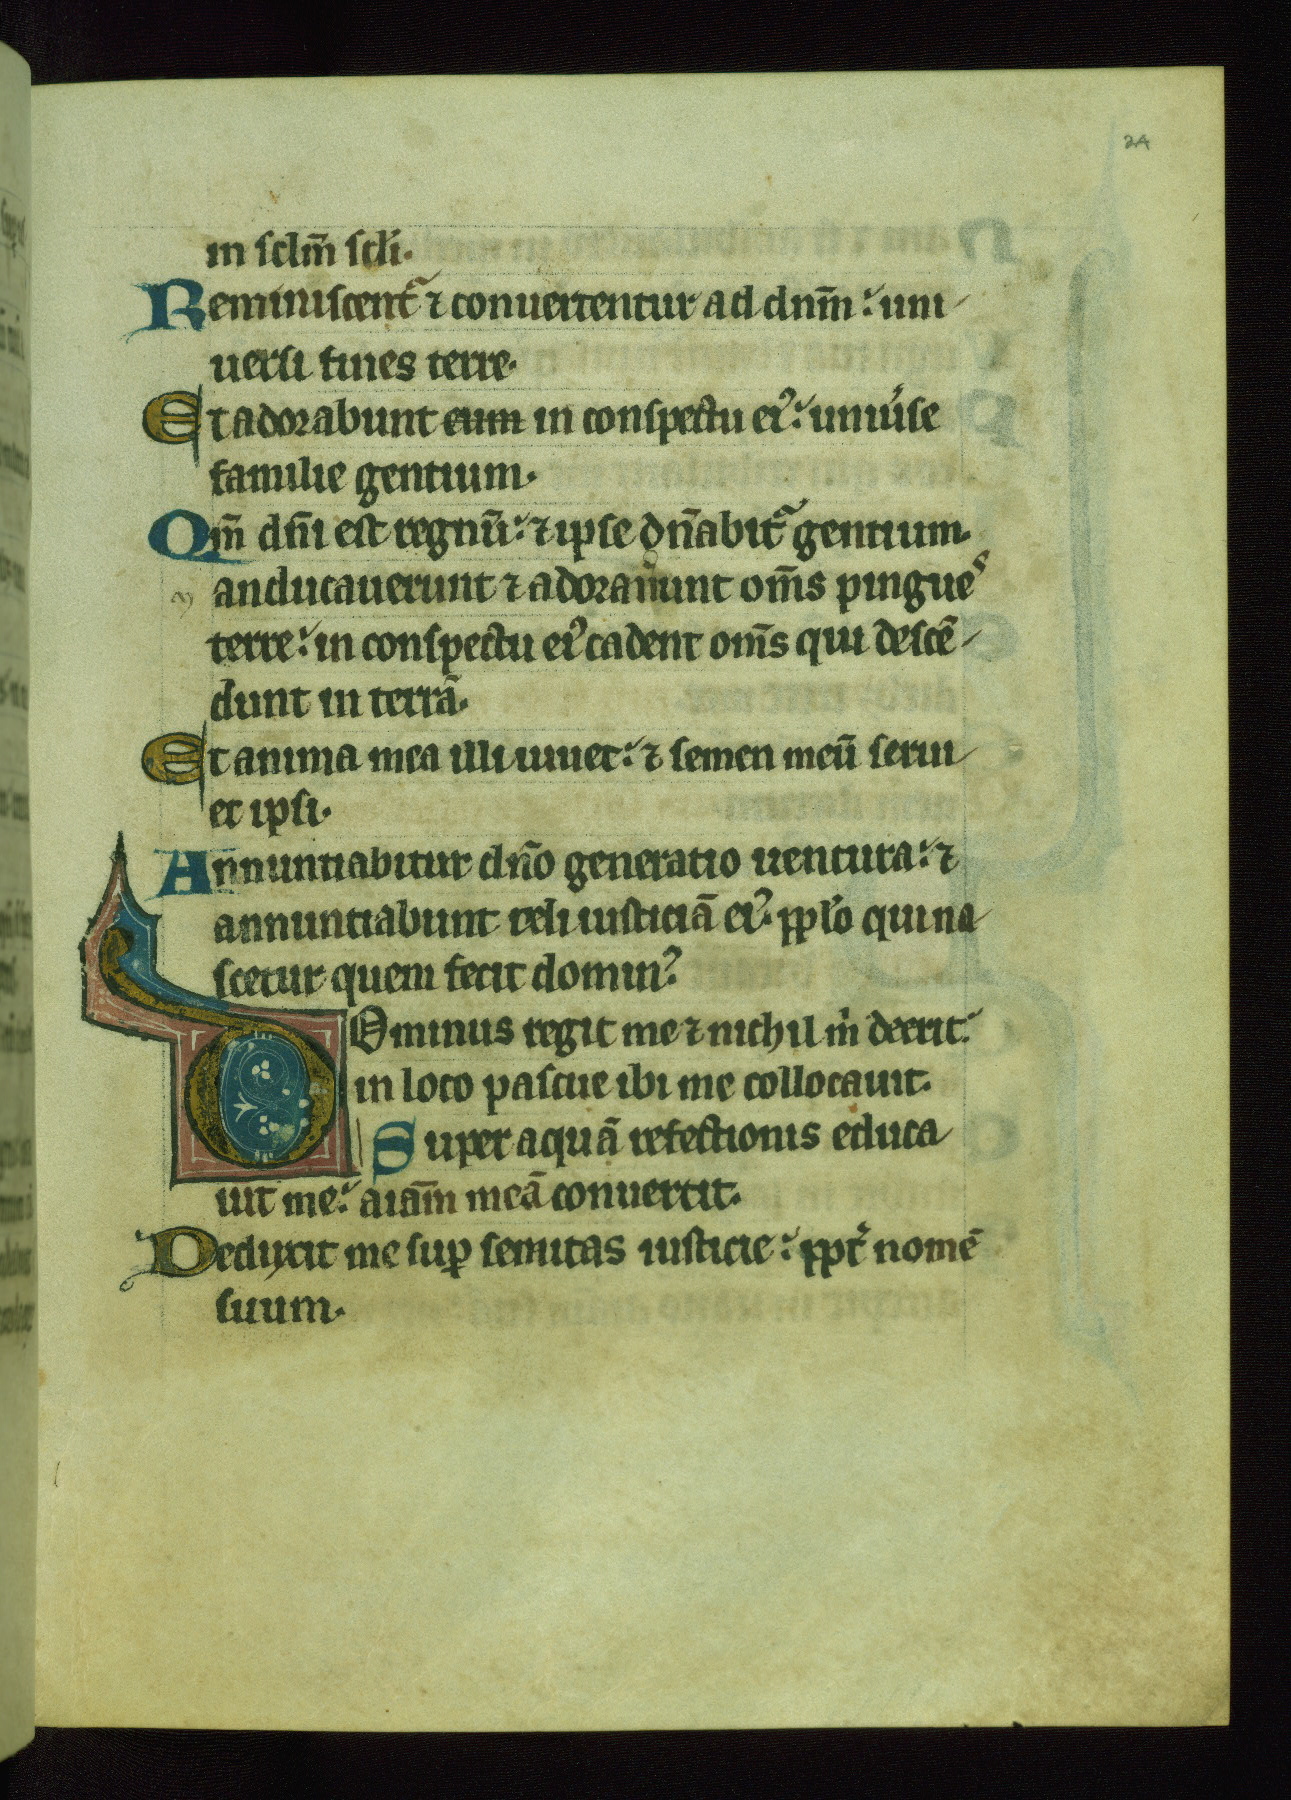 24
in sclm̄ scl'i.
Reminiscent᷑ ⁊ conuertentur ad dnm̄: uni
uersi fines terre.
Et adorabunt eum in conspectu ei᷒: uniu'se
familie gentium.
Qm̄ dn̄i est regnū: ⁊ ipse dn̄abit᷑ gentium.
m anducauerunt ⁊ adorauunt om̄s pingues
terre: in conspectu ei᷒ cadent om̄s qui descē
dunt in terrā.
Et anima mea illi uiuet: ⁊ semen meū serui
et ipsi.
Annuntiabitur dn̄o generatio uentura: ⁊
annuntiabunt celi iusticiā ei᷒. ppl'o qui na
scetur quem fecit domin᷒.
Dominus regit me ⁊ nichil m̍ deerit:
in loco pascue ibi me collocauit.
Super aquā refectionis educa
uit me: aiam̄ meā conuertit.
Deduxit me suꝑ semitas iusticie: ꝓpt̍ nomē
suum.